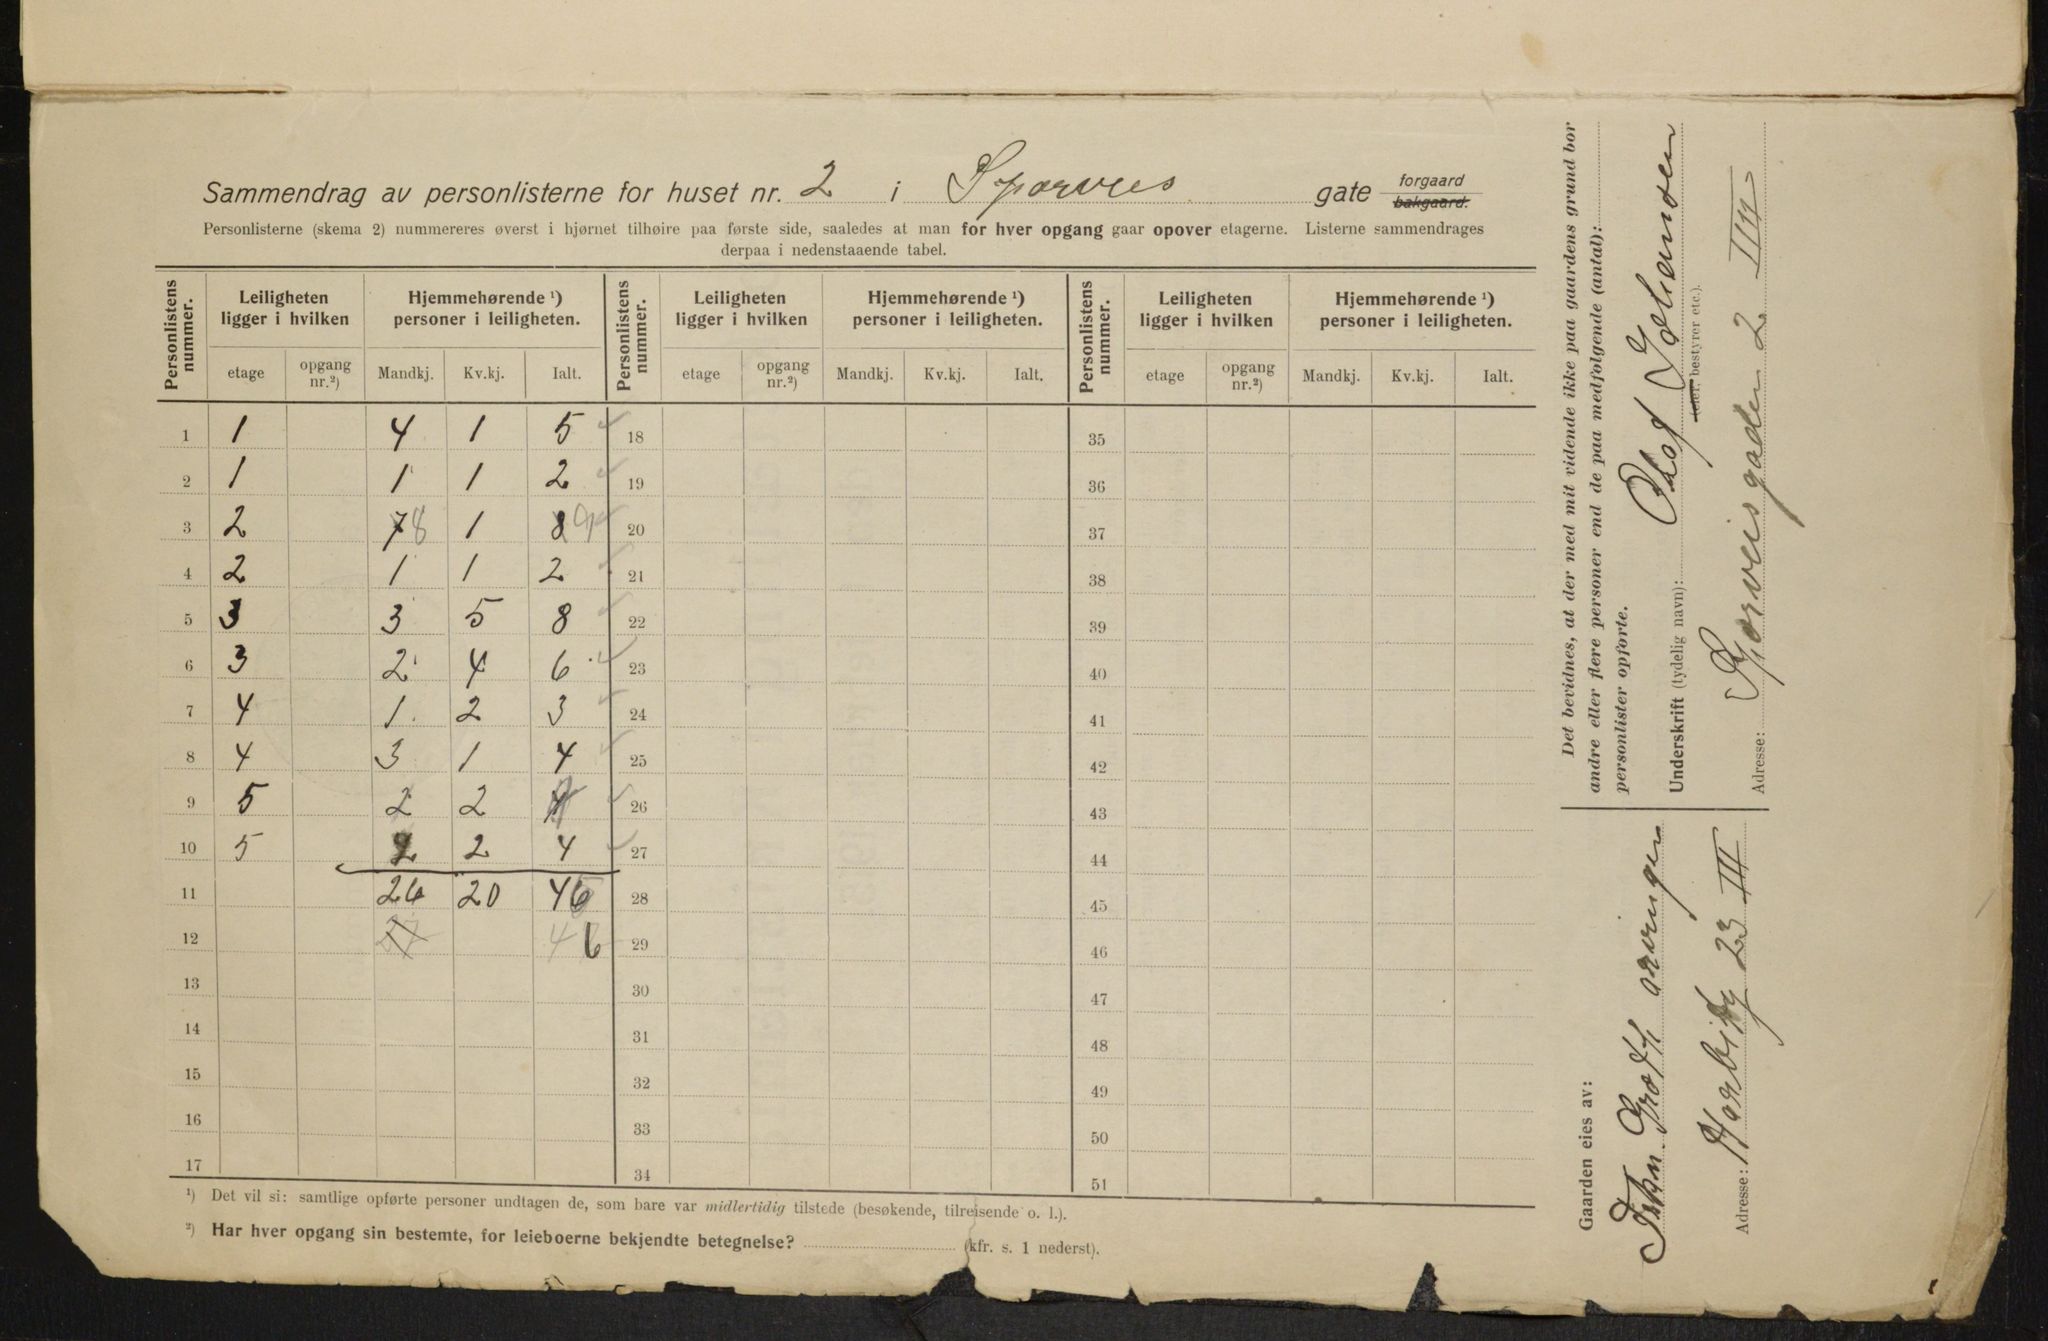 Sammendrag av personlisterne for huset nr. 2 i Sporveis gate forgaard bakgaard.
Personlisterne (skema 2) nummereres øverst i hjørnet tilhøire paa første side, saaledes at man for hver opgang gaar opover etagerne. Listerne sammendrages
derpaa i nedenstaaende tabel.
Personlistens nummer. Leiligheten ligger i hvilken Hjemmehørende ¹) personer i leiligheten. Personlistens nummer. Leiligheten ligger i hvilken Hjemmehørende ¹) personer i leiligheten. Personlistens nummer. Leiligheten ligger i hvilken Hjemmehørende ¹) personer i leiligheten.
etage opgang nr.²) Mandkj. Kv.kj. Ialt. etage opgang nr.²) Mandkj. Kv.kj. Ialt. etage opgang nr.²) Mandkj. Kv.kj. Ialt.
1 1 4 1 5 18 35
2 1 1 1 2 19 36
3 2 7 8 1 8 9 20 37
4 2 1 1 2 21 38
5 3 3 5 8 22 39
6 3 2 4 6 23 40
7 4 1 2 3 24 41
8 4 3 1 4 25 42
9 5 2 2 26 43
10 5 2 2 4 27 44
11 26 20 46 28 45
12 46 29 46
13 30 47
14 31 48
15 32 49
16 33 50
17 34 51
¹) Det vil si: samtlige opførte personer undtagen de, som bare var midlertidig tilstede (besøkende, tilreisende o. l.).
²) Har hver opgang sin bestemte, for leieboerne bekjendte betegnelse? (kfr. s. 1 nederst).
Det bevidnes, at der med mit vidende ikke paa gaardens grund bor
andre eller flere personer end de paa medfølgende (antal):
personlister opførte.
Underskrift (tydelig navn): Olaf Johansen
(eier, bestyrer etc.).
Adresse: Sporveisgaden 2 III
Gaarden eies av:
Grøtt arvinger
Adresse: 23 III